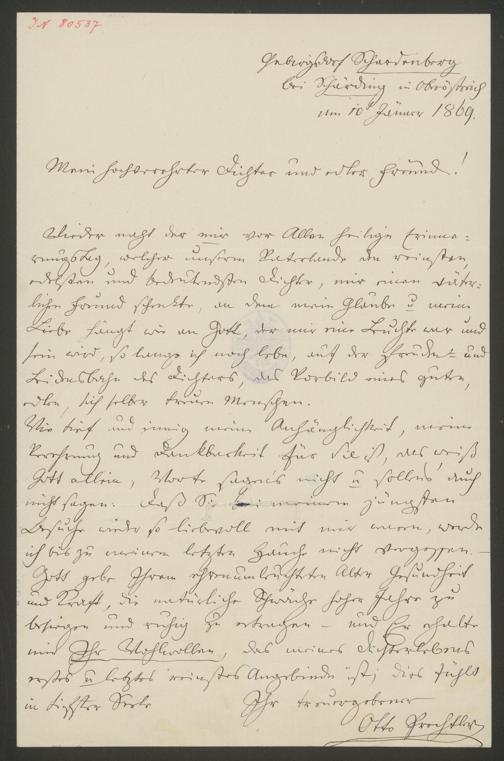 J.N 80537
Gebirgsdorf Schardenberg
bei Schärding in Oberöstreich
am 10 Jänner 1869.
Mein hochverehrter Dichter und edler Freund!
Wieder naht der mir vor Allen heilige Erinne-
rungstag, welcher unserm Vaterlande den reinsten
edelsten und bedeutendsten Dichter, mir einen väter-
lichen Freund schenkte, an dem mein Glaube u meine
Liebe hängt wie an Gott, der mir eine Leuchte war und
sein wird, so lange ich noch lebe, auf der Freuden- und
Leidensbahn des Dichters, das Vorbild eines guten,
edlen, sich selber treuen Menschen.
Wie tief und innig meine Anhänglichkeit, meine
Verehrung und Dankbarkeit für Sie ist, das weiß
Gott allein, Worte sagen's nicht u sollens auch
nicht sagen. Daß Sie bei meinem jüngsten
Besuche wieder so liebevoll mit mir waren, werde
ich bis zu meinem letzten Hauche nicht vergessen. –
Gott gebe Ihrem ehrenumleuchteten Alter Gesundheit
und Kraft, die natürliche Schwäche hoher Jahre zu
besiegen und ruhig zu ertragen – und Er erhalte
mir Ihr Wohlwollen, das meines Dichterlebens
erstes u letztes reinstes Angebinde ist; dies fühlt
in tiefster Seele
Ihr treuergebener
Otto Prechtler